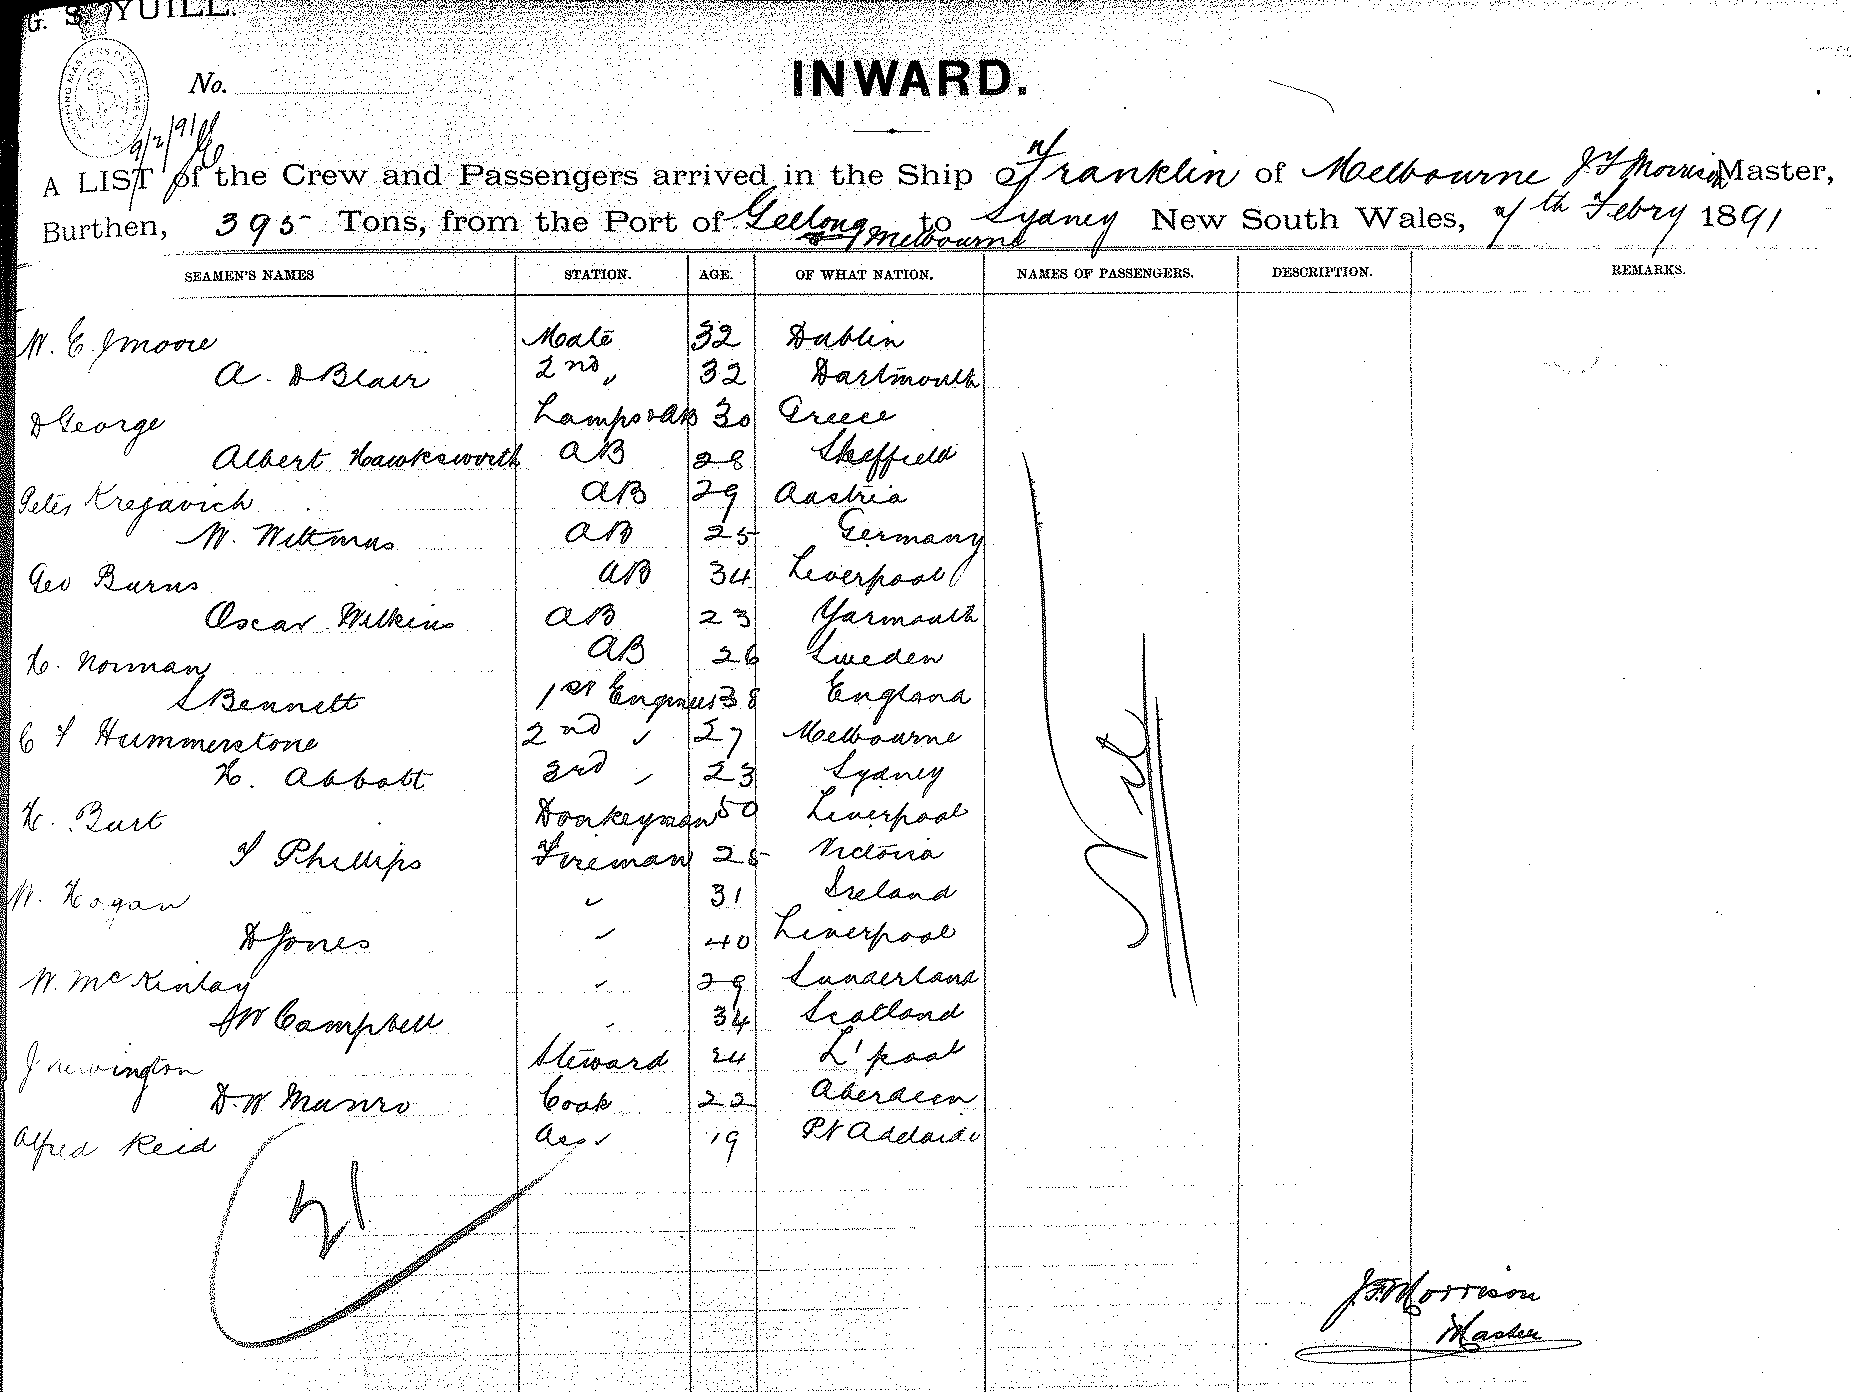 G. S. YUILL.
No.
9/2/91
INWARD.
A LIST of the Crew and Passengers arrived in the Ship Franklin of Melbourne J F Morrison Master,
Burthen, 395 Tons, from the Port of Geelong & Melbourne to Sydney New South Wales, 7th Febry 1891
SEAMEN'S NAMES STATION. AGE. OF WHAT NATION. NAMES OF PASSENGERS. DESCRIPTION. REMARKS.
W. E. Mate 32 Dublin
A. D Blair 2nd " 32 Dartmouth
D George Lamps & AB 30 Greece
Albert Hawksworth AB 28 Sheffield
Peter Kregavich AB 29 Austria
W. Wittmus AB 25 Germany
Geo Burns AB 34 Liverpool
Oscar Wilkins AB 23 Yarmouth
H. Norman AB 26 Sweden
S Bennett 1st Engineer 38 England
C F Hummerstone 2nd " 27 Melbourne
H. Abbott 3rd " 23 Sydney
H. Burt Donkeyman 50 Liverpool
F Phillips Fireman 25 Victoria
W. Hogan " 31 Ireland
D Jones " 40 Liverpool
W. McKinlay " 29 Sunderland
J W Campbell " 34 Scotland
J Newington Steward 24 L'pool
D. W Munro Cook 22 Aberdeen
Alfred Reid Ass " 19 Pt Adelaide
Nil
21
J. F. Morrison
Master